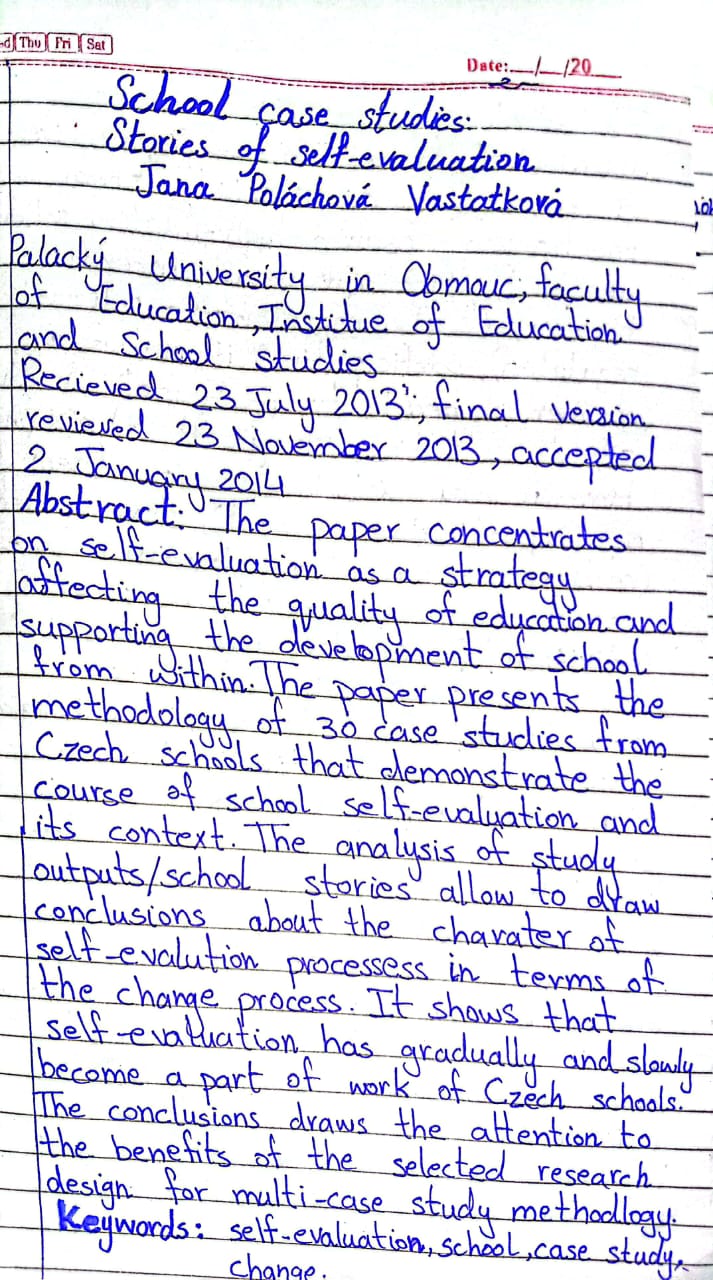 Thu Fri Sat
Date: / /20
School case studies:
Stories of self-evaluation
Jana Poláchová Vastatková
Palacký University in Obmouc, faculty
of Education, Institue of Education
and School studies
Recieved 23 July 2013; final version
reviewed 23 November 2013, accepted
2 January 2014
Abstract: The paper concentrates
on self-evaluation as a strategy
affecting the quality of education and
supporting the development of school
from within. The paper presents the
methodology of 30 case studies from
Czech schools that demonstrate the
course of school self-evaluation and
its context. The analysis of study
outputs/school stories allow to draw
conclusions about the charater of
self-evalution processess in terms of
the change process. It shows that
self-evaluation has gradually and slowly
become a part of work of Czech schools.
The conclusions draws the attention to
the benefits of the selected research
design for multi-case study methodlogy.
Keywords: self-evaluation, school, case study,
change.